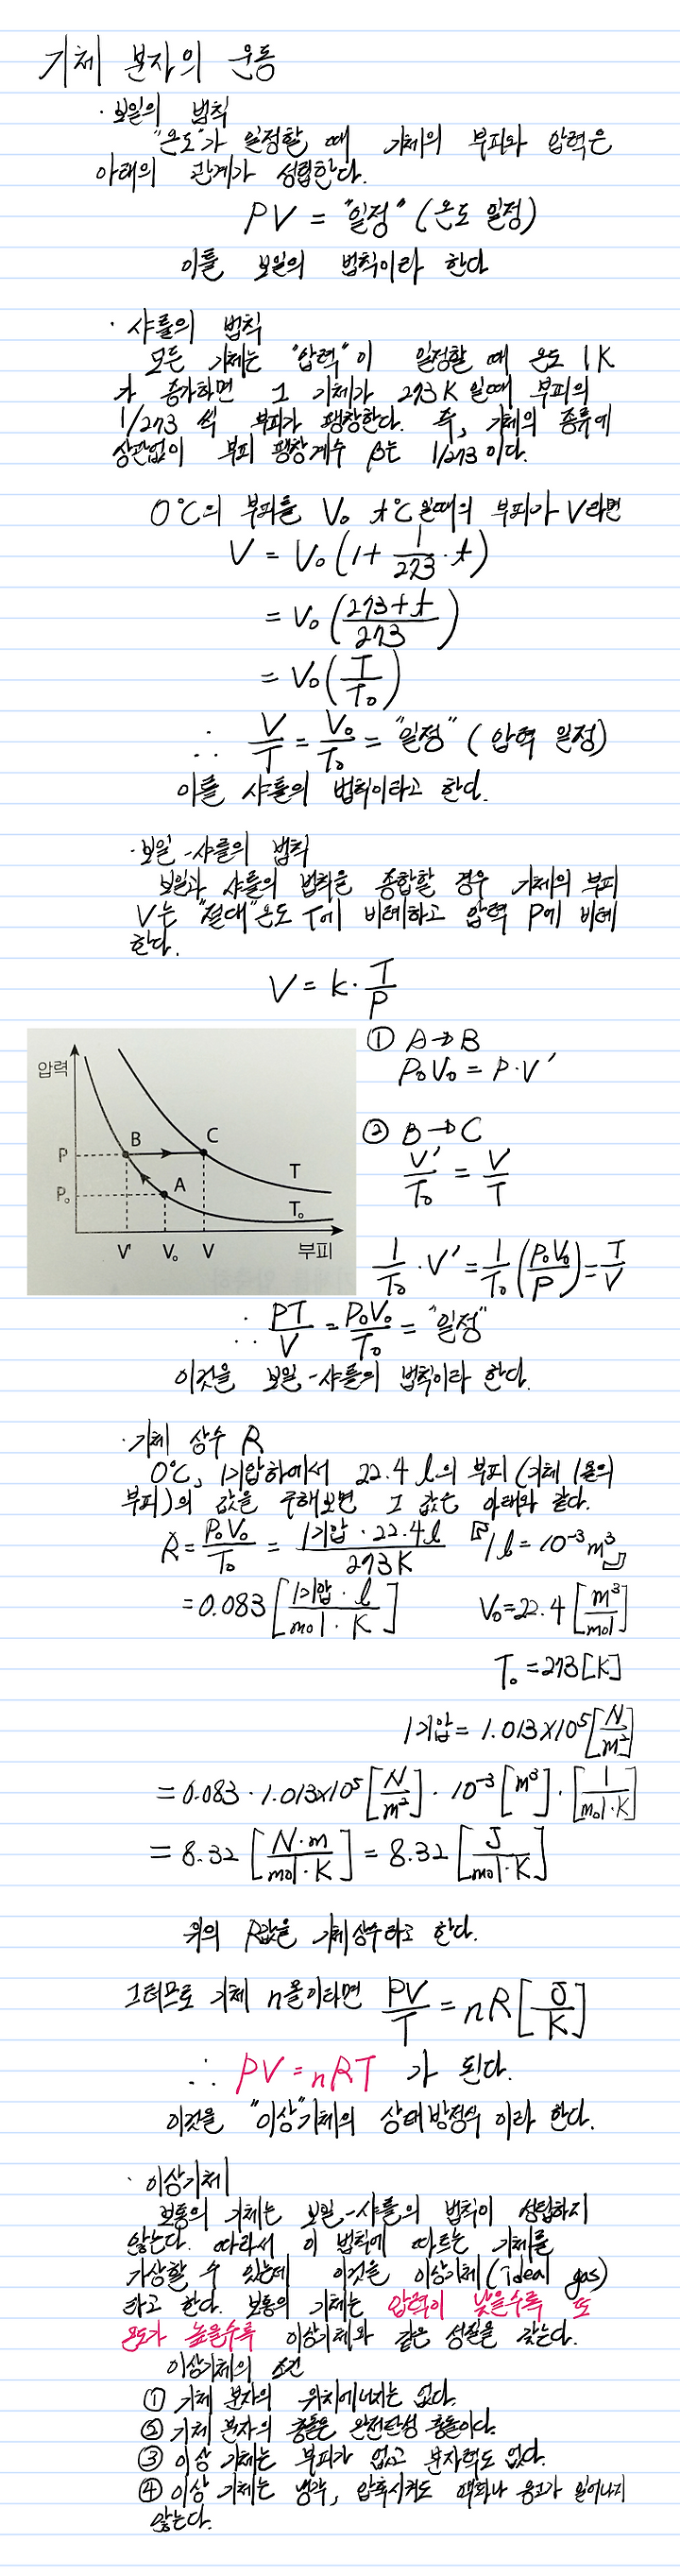 기체 분자의 운동
· 보일의 법칙
"온도"가 일정할 때 기체의 부피와 압력은
아래의 관계가 성립한다.
PV = "일정" (온도 일정)
이를 보일의 법칙이라 한다
· 샤를의 법칙
모든 기체는 "압력"이 일정할 때 온도 1K
가 증가하면 그 기체가 273K 일때 부피의
1/273 씩 부피가 팽창한다. 즉, 기체의 종류에
상관없이 부피 팽창계수 β는 1/273이다.
0°C의 부피를 V₀ t°C일때의 부피가 V라면
V = V₀(1+ 1/273 · t)
= V₀((273+t)/273)
= V₀(T/T₀)
∴ V/T = V₀/T₀ = "일정" (압력 일정)
이를 샤를의 법칙이라고 한다.
· 보일-샤를의 법칙
보일과 샤를의 법칙을 종합할 경우 기체의 부피
V는 "절대"온도 T에 비례하고 압력 P에 비례
한다.
V = k · T/P
압력
P
P₀
B
C
A
T
T₀
V' V₀ V 부피
① A→B
P₀V₀ = P·V'
② B→C
V'/T₀ = V/T
1/T₀ · V' = 1/T₀ (P₀V₀/P) = T/V
∴ PT/V = P₀V₀/T₀ = "일정"
이것을 보일-샤를의 법칙이라 한다.
· 기체 상수 R
0°C, 1기압하에서 22.4 l의 부피(기체 1몰의
부피)의 값을 구해보면 그 값은 아래와 같다.
R = P₀V₀/T₀ = 1기압 · 22.4l / 273K
1l = 10⁻³m³
= 0.083 [1기압 · l / mol · K]
V₀ = 22.4 [m³/mol]
T₀ = 273[K]
1기압 = 1.013×10⁵[N/m²]
= 0.083 · 1.013×10⁵ [N/m²] · 10⁻³ [m³] · [1/mol·K]
= 8.32 [N·m/mol·K] = 8.32 [J/mol·K]
위의 R값을 기체상수라고 한다.
그러므로 기체 n몰이라면 PV/T = nR [J/K]
∴ PV = nRT 가 된다.
이것을 "이상"기체의 상태방정식 이라 한다.
· 이상기체
보통의 기체는 보일-샤를의 법칙이 성립하지
않는다. 따라서 이 법칙에 따르는 기체를
가상할 수 있는데 이것을 이상기체(ideal gas)
라고 한다. 보통의 기체는 압력이 낮을수록 또
온도가 높을수록 이상기체와 같은 성질을 갖는다.
이상기체의 조건
① 기체 분자의 위치에너지는 없다.
② 기체 분자의 충돌은 완전탄성 충돌이다.
③ 이상 기체는 부피가 없고 분자력도 없다.
④ 이상 기체는 냉각, 압축시켜도 액화나 응고가 일어나지
않는다.